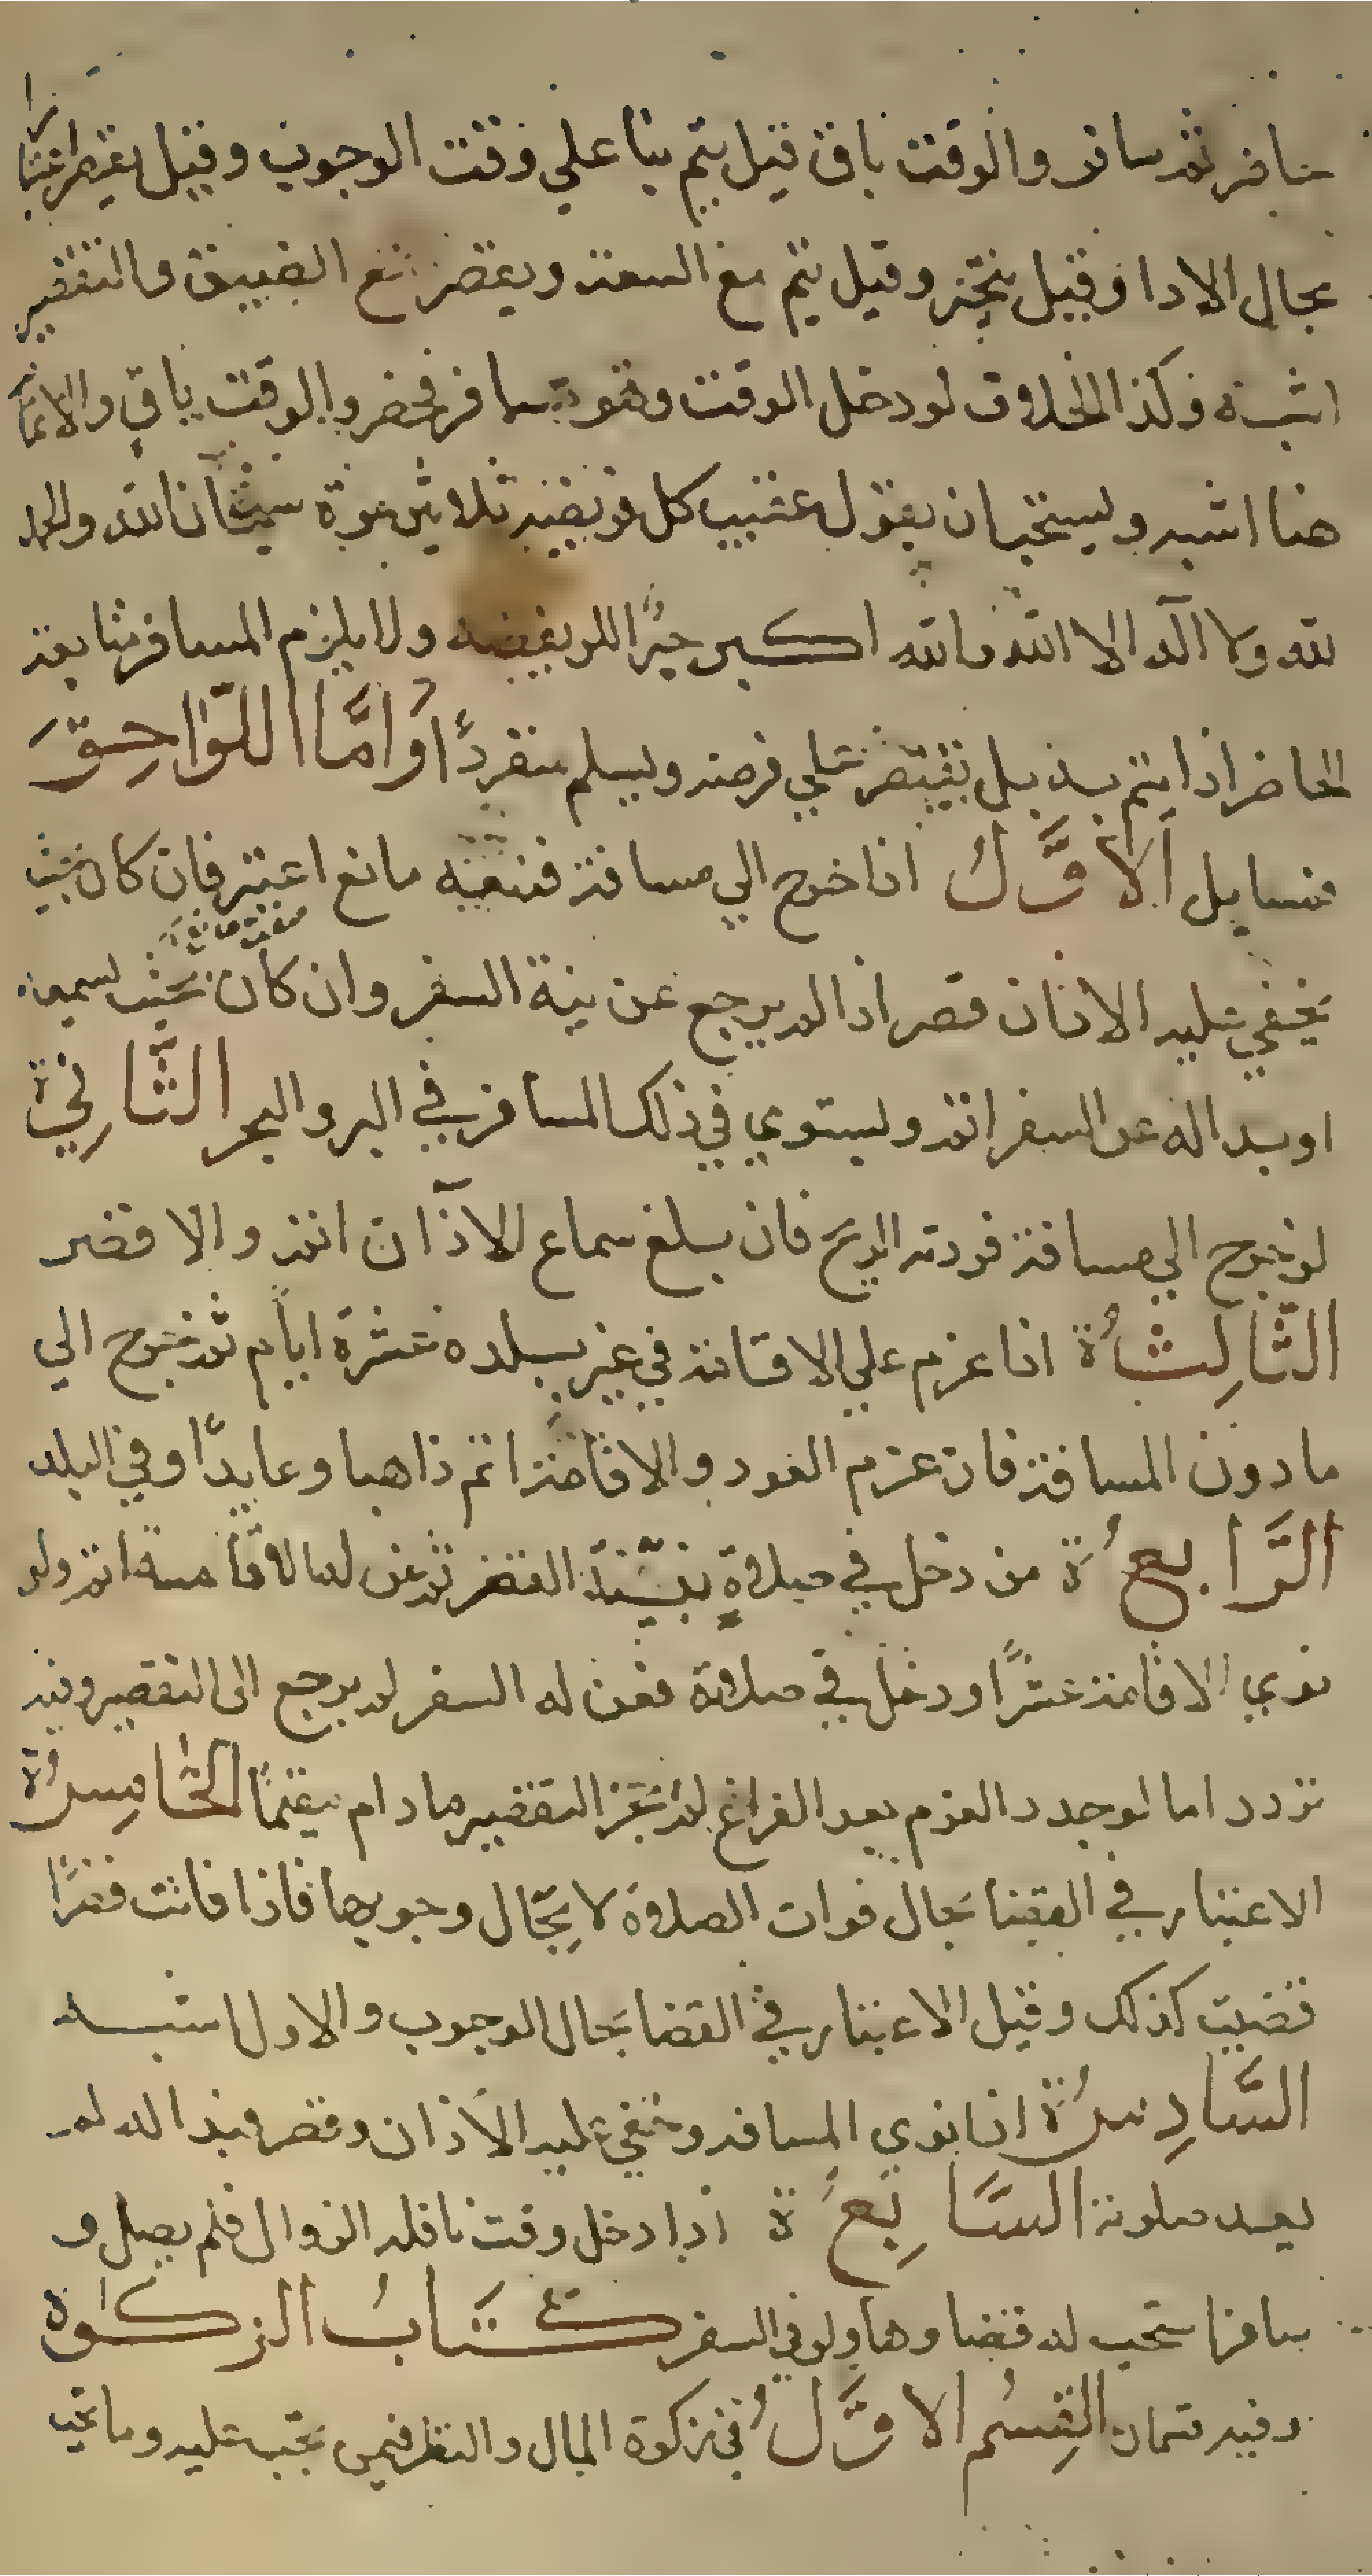 حاضر ثم سافر والوقت باق قيل يتم بنا علي وقت الوجوب وقيل يقصر اعتبارا
بحال الادا وقيل يتخير وقيل يتم مع السعة ويقصر مع الضيق والتقصير
اشبه وكذا الخلاف لو دخل الوقت وهو مسافر فحضر والوقت باق والاتمام
هنا اشبه ويستحب ان يقول عقيب كل فريضة ثلاثين مرة سبحان الله والحمد
لله ولا اله الا الله والله اكبر جبرا للفريضة ولا يلزم المسافر متابعة
الحاضر اذا ايتم به بل يقتصر علي فرضه ويسلم منفردا وَامَّا اللَّوَاحِقَ
فمسايل اَلاوَّلُ اذا خرج الي مسافة فمنعه مانع اعتبر فان كان بحيث
يخفي عليه الاذان قصر اذا لم يرجع عن نية السفر وان كان بحيث يسمعه
او بدا له عن السفر اتم ويستوي في ذلك المسافر في البر والبحر الثَّانِيَة
لو خرج الي مسافة فردته الريح فان بلغ سماع الاذان اتم والا قصر
الثَّالِثَةُ اذا عزم علي الاقامة في غير بلده عشرة ايام ثم خرج الي
ما دون المسافة فان عزم العود والاقامة اتم ذاهبا وعايدا وفي البلد
الرَّابِعَةُ من دخل في صلاة بنية القصر ثم عن له الاقامة اتم ولو
نوي الاقامة عشرا ودخل في صلاة فعن له السفر لم يرجع الى التقصير وفيه
تردد اما لو جدد العزم بعد الفراغ لم يجز التقصير ما دام مقيما الخَامِسَةُ
الاعتبار في القضا بحال فوات الصلاة لا بحال وجوبها فاذا فاتت قصرا
قضيت كذلك وقيل الاعتبار في القضا بحال الوجوب والاول اشبه
السَّادِسَةُ اذا نوي المسافة وخفي عليه الاذان وقصر فبدا له لم
يعد صلوته السَّابِعَةُ اذا دخل وقت نافلة الزوال فلم يصل و
سافر استحب له قضاوها ولو في السفر كِتَابُ الزكوة
وفيه قسمان القِسْم الاوَّلُ في زكوة المال والنظر فيمن تجب عليه وما تجب